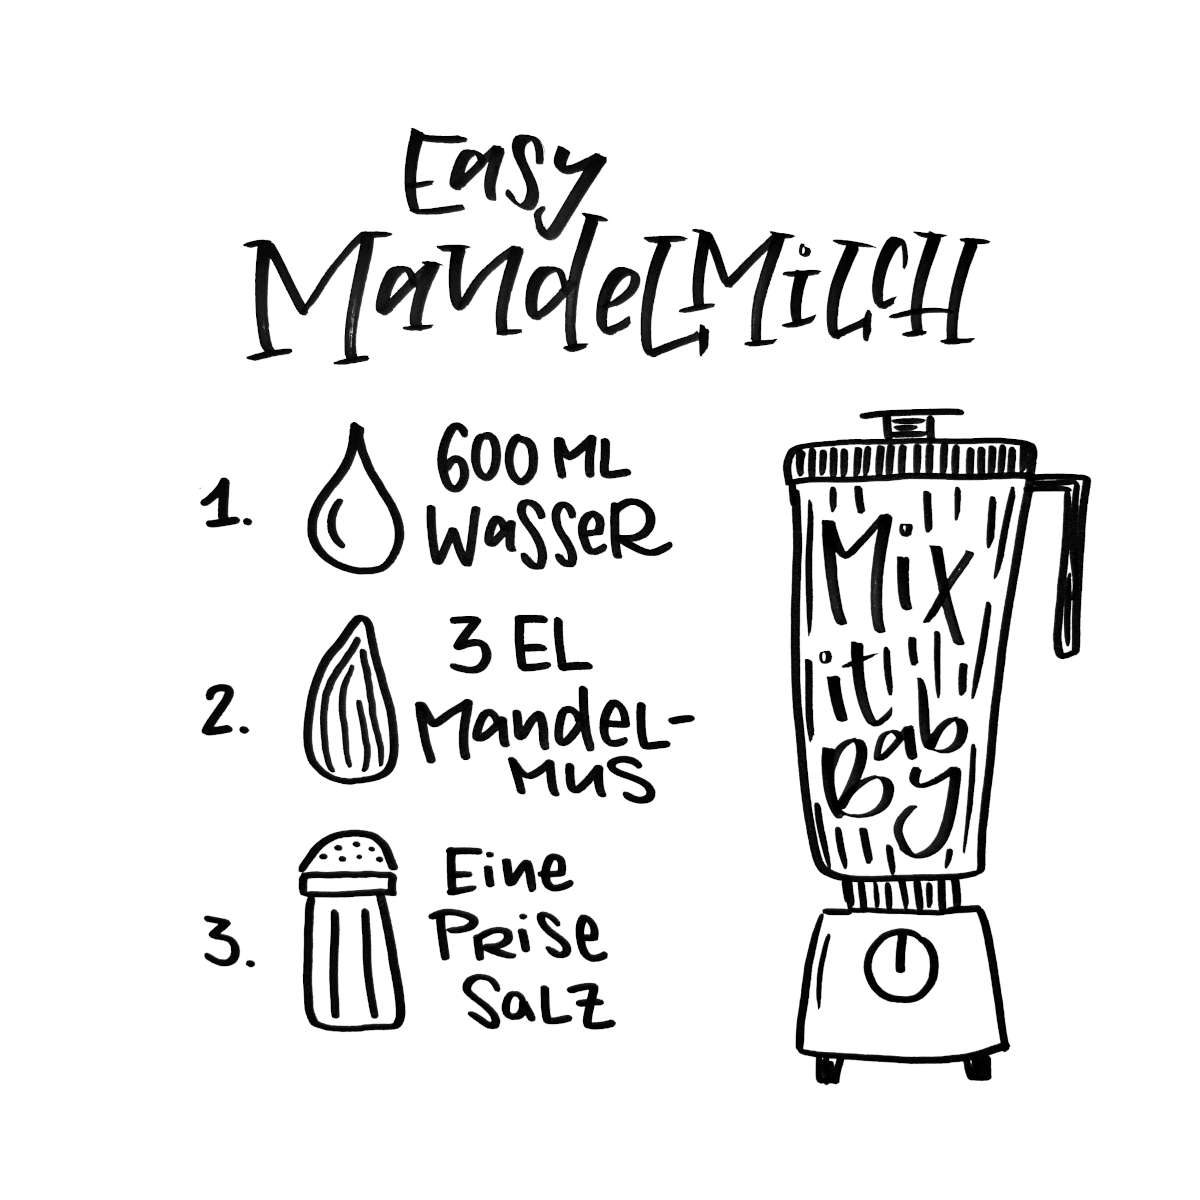 Easy
Mandelmilch
1. 600 ml
Wasser
2. 3 EL
Mandel-
mus
3. Eine
Prise
Salz
Mix
it
Baby